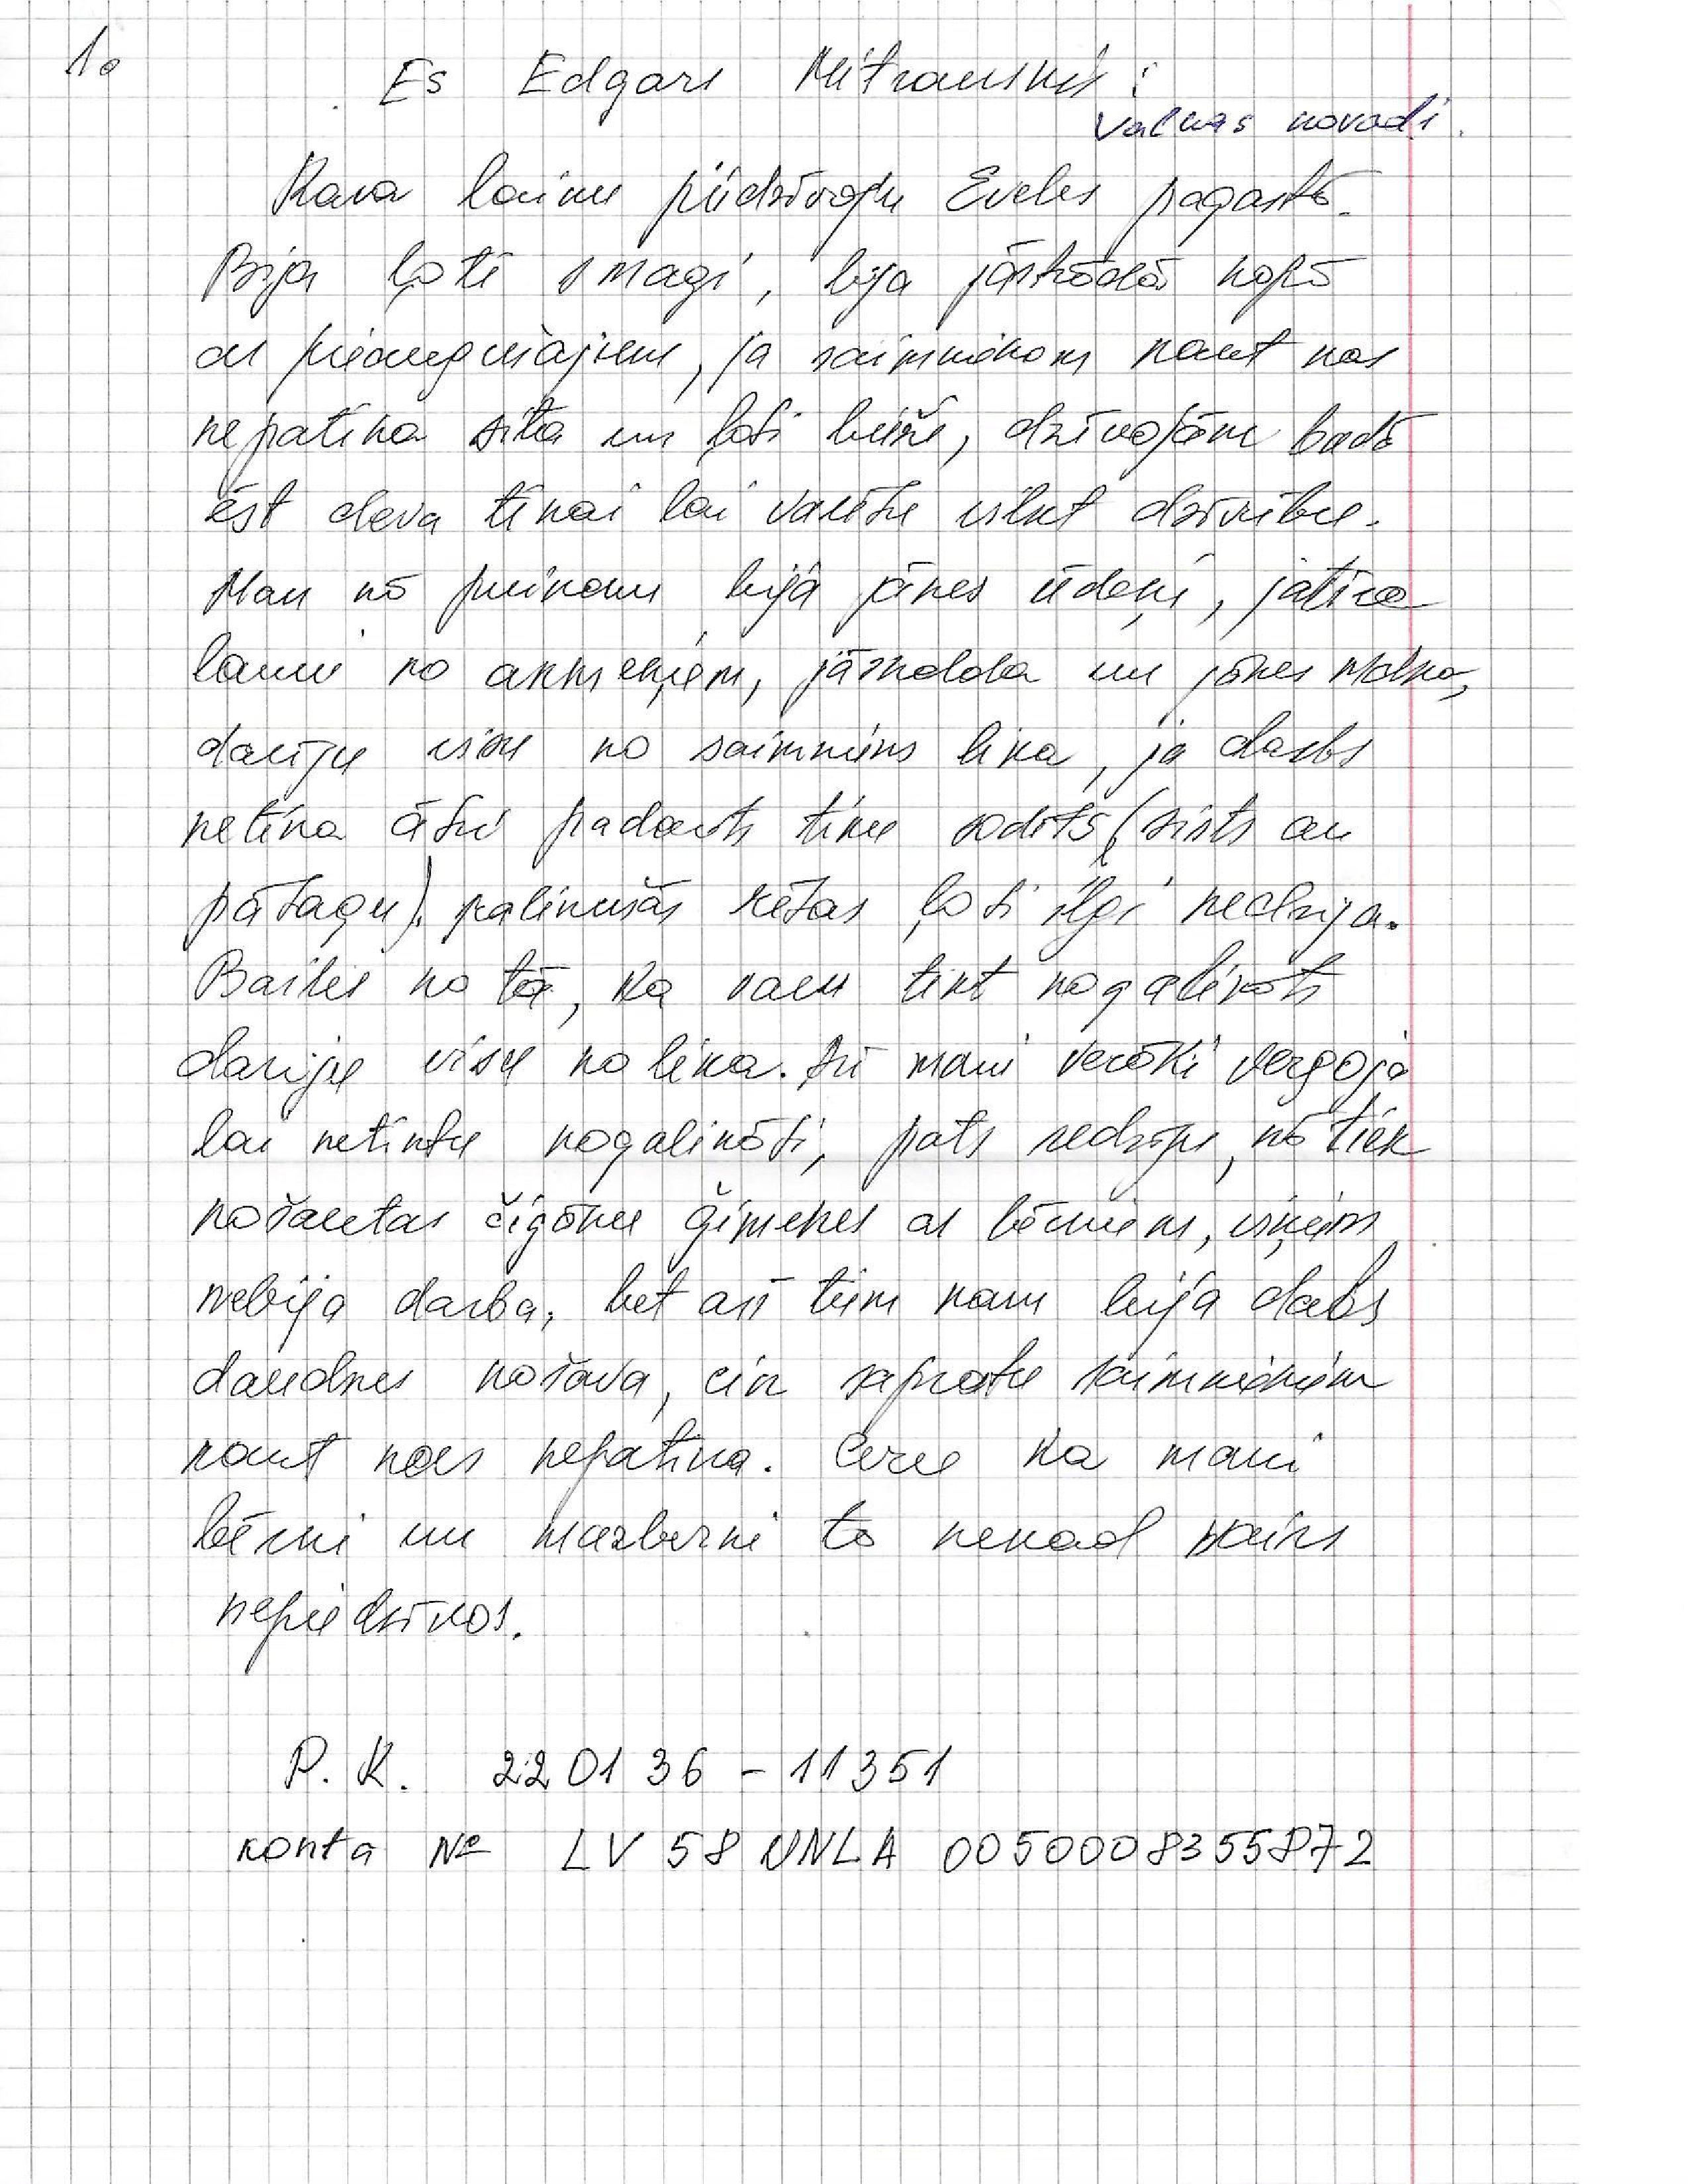 1.
Es Edgars Mitrauskis:
Valkas novadi.
Kara laiku piedzīvoju Ēveles pagastā.
Bija ļoti smagi, bija jāstrādā kopā
ar pieaugušajiem, ja saimniekam kaut kas
nepatika sita un ļoti bieži, dzīvojām badā
ēst deva tikai lai varētu vilkt dzīvību.
Man kā puikam bija jānes ūdeņi, jatīra
lauki no akmeņiem, jāskalda un jānes malka,
darīju visu ko saimnieks lika, ja darbs
netika ātri padarīts tiku sodīts (sists ar
pātagu). palikušās rētas ļoti ilgi nedzija.
Bailes no tā, ka varu tikt nogalināts
darīju visu ko lika. Arī mani vecāki vergoja
lai netiktu nogalināti, pats redzēju, kā tiek
nošautas čigānu ģimenes ar bērniem, viņiem
nebija darba, bet arī tiem kam bija dabs
daudzus nošāva, cik sapratu saimniekiem
kaut kas nepatika. Ceru ka mani
bērni un mazberni to nekad vairs
nepiedzīvos.
P. K. 220136-11351
konta № LV 58 UNLA 0050008355872